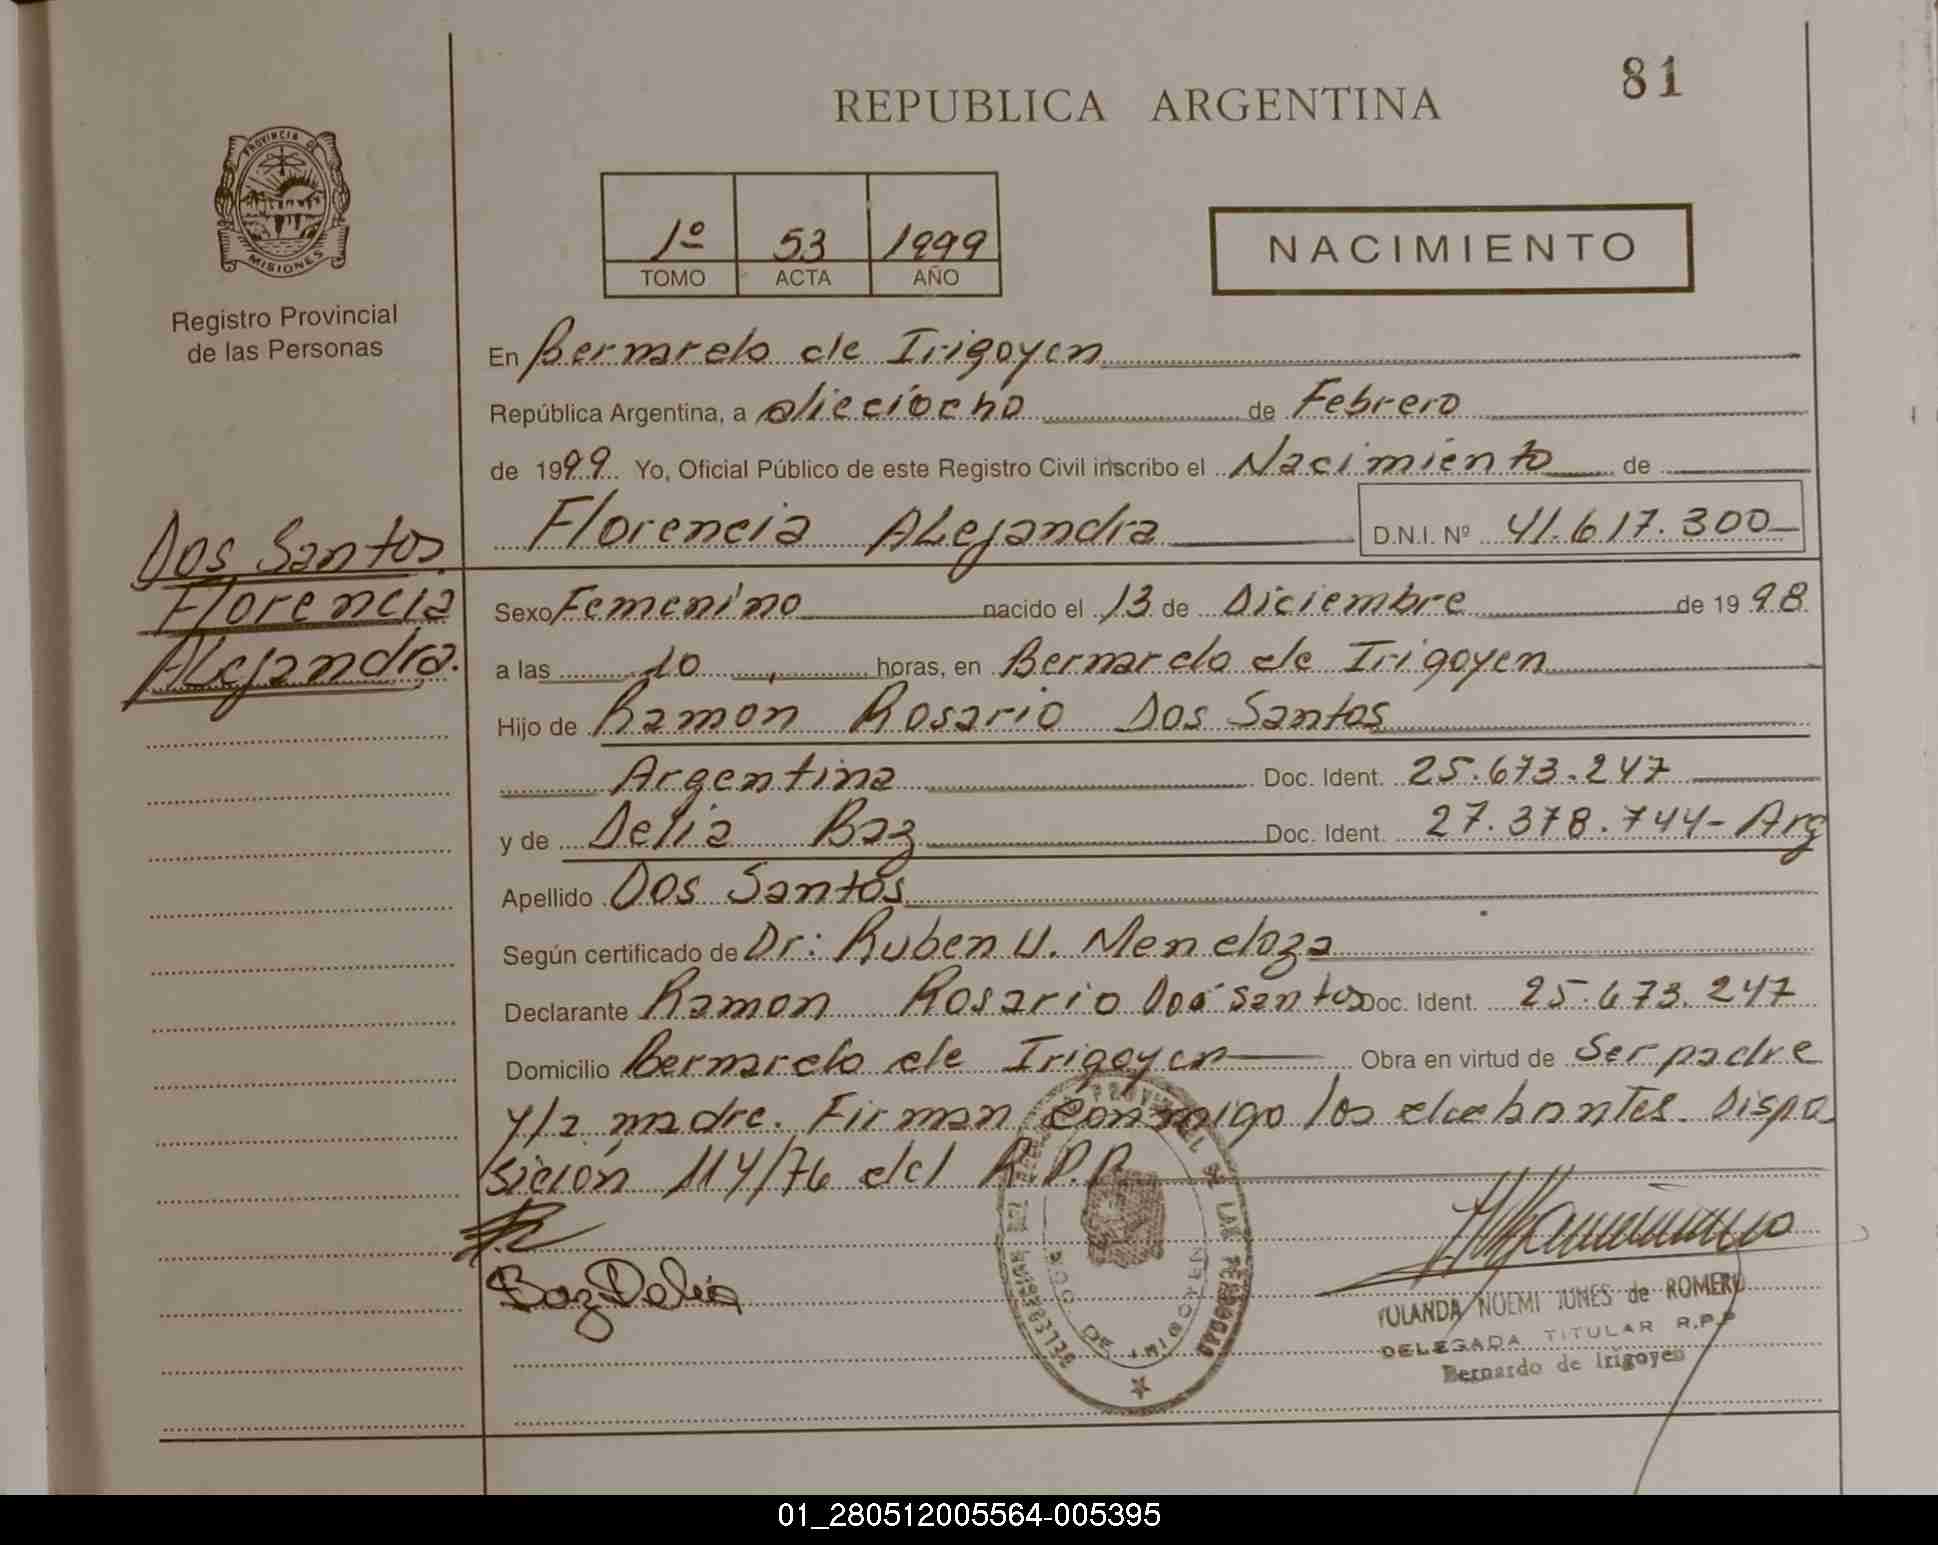 81
REPUBLICA ARGENTINA
PROVINCIA DE
MISIONES
Registro Provincial
de las Personas
1º 53 1999
TOMO ACTA AÑO
NACIMIENTO
En Bernardo de Irigoyen
República Argentina, a dieciocho de Febrero
de 1999 Yo, Oficial Público de este Registro Civil inscribo el Nacimiento de
Florencia Alejandra D.N.I. Nº 41.617.300
Dos Santos
Florencia
Alejandra.
Sexo Femenino nacido el 13 de Diciembre de 1998
a las 10 horas, en Bernardo de Irigoyen
Hijo de Ramon Rosario Dos Santos
Argentina Doc. Ident. 25.673.247
y de Delia Baz Doc. Ident. 27.378.744- Arg
Apellido Dos Santos
Según certificado de Dr: Ruben U. Mendoza
Declarante Ramon Rosario Dos Santos Doc. Ident. 25.673.247
Domicilio Bernardo de Irigoyen Obra en virtud de Ser padre
y la madre. Firman conmigo los Dispo
sición 114/76 del R.P.P.
Baz Delia
YOLANDA NOEMI JUNES de ROMERO
DELEGADA TITULAR R.P.P
Bernardo de Irigoyen
01_280512005564-005395